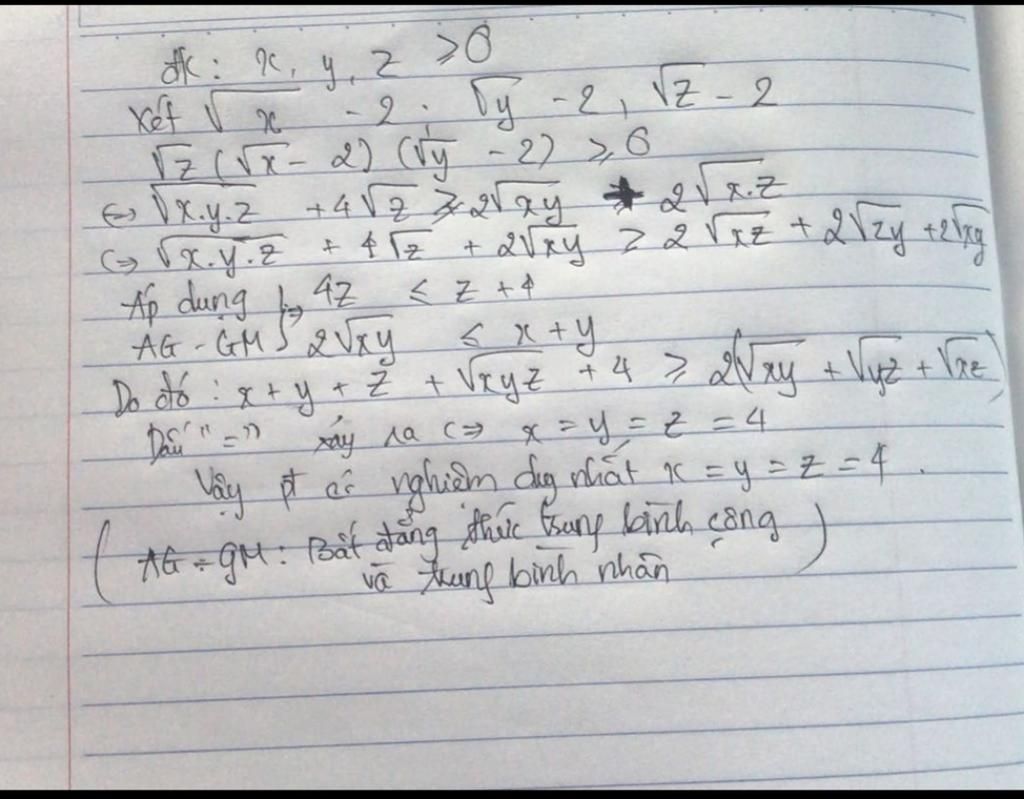 đk: x, y, z ≥ 0
Xét √x - 2, √y - 2, √z - 2
√z (√x - 2) (√y - 2) ≥ 0
⇔ √x.y.z + 4√z ≥ 2√xy 2√x.z
⇔ √x.y.z + 4√z + 2√xy ≥ 2√xz + 2√zy + 2√xy
Áp dụng } ⇒ 4z ≤ z + 4
AG - GM 2√xy ≤ x + y
Do đó: x + y + z + √xyz + 4 ≥ 2(√xy + √yz + √xz)
Dấu "=" xảy ra ⇔ x = y = z = 4
Vậy pt có nghiệm duy nhất x = y = z = 4.
(AG - GM: Bất đẳng thức trung bình cộng
và trung bình nhân)